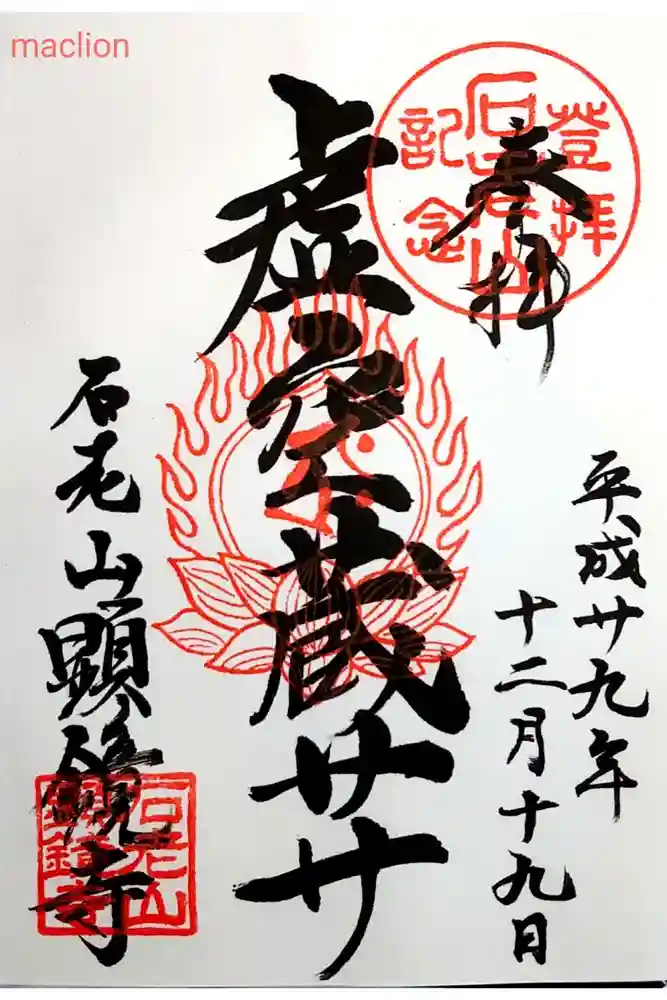 maclion
奉拝
登拝
石老山
記念
平成廿九年
十二月十九日
虚空蔵サ
サ
石老山顕鏡寺
石老山
顕鏡寺